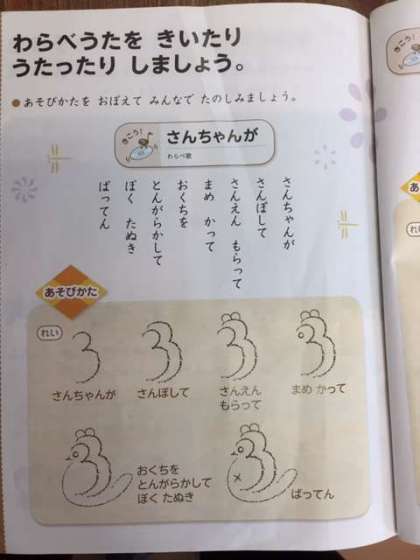 わらべうたを きいたり
うたったり しましょう。
●あそびかたを おぼえて みんなで たのしみましょう。
きこう!
さんちゃんが
わらべ歌
さんちゃんが
さんぽして
さんえん もらって
まめ かって
おくちを
とんがらかして
ぼく たぬき
ばってん
あそびかた
れい
3
さんちゃんが
さんぽして
さんえん
もらって
まめ かって
おくちを
とんがらかして
ぼく たぬき
ばってん
きこう!
れい